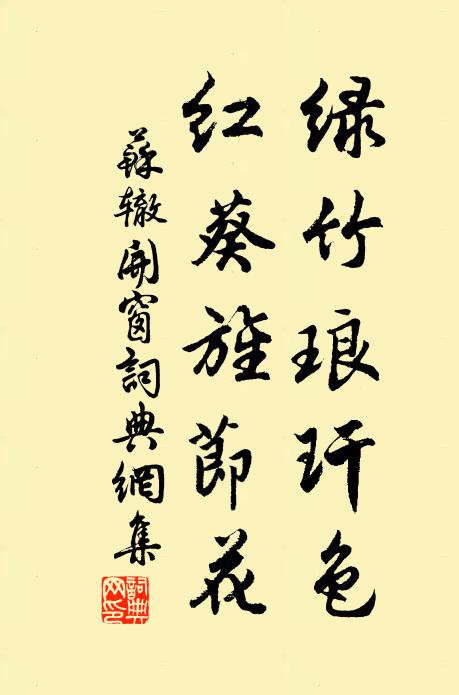 绿竹琅玕色
红葵旌節花
蘇辙開窗詞典網集
詞典网印